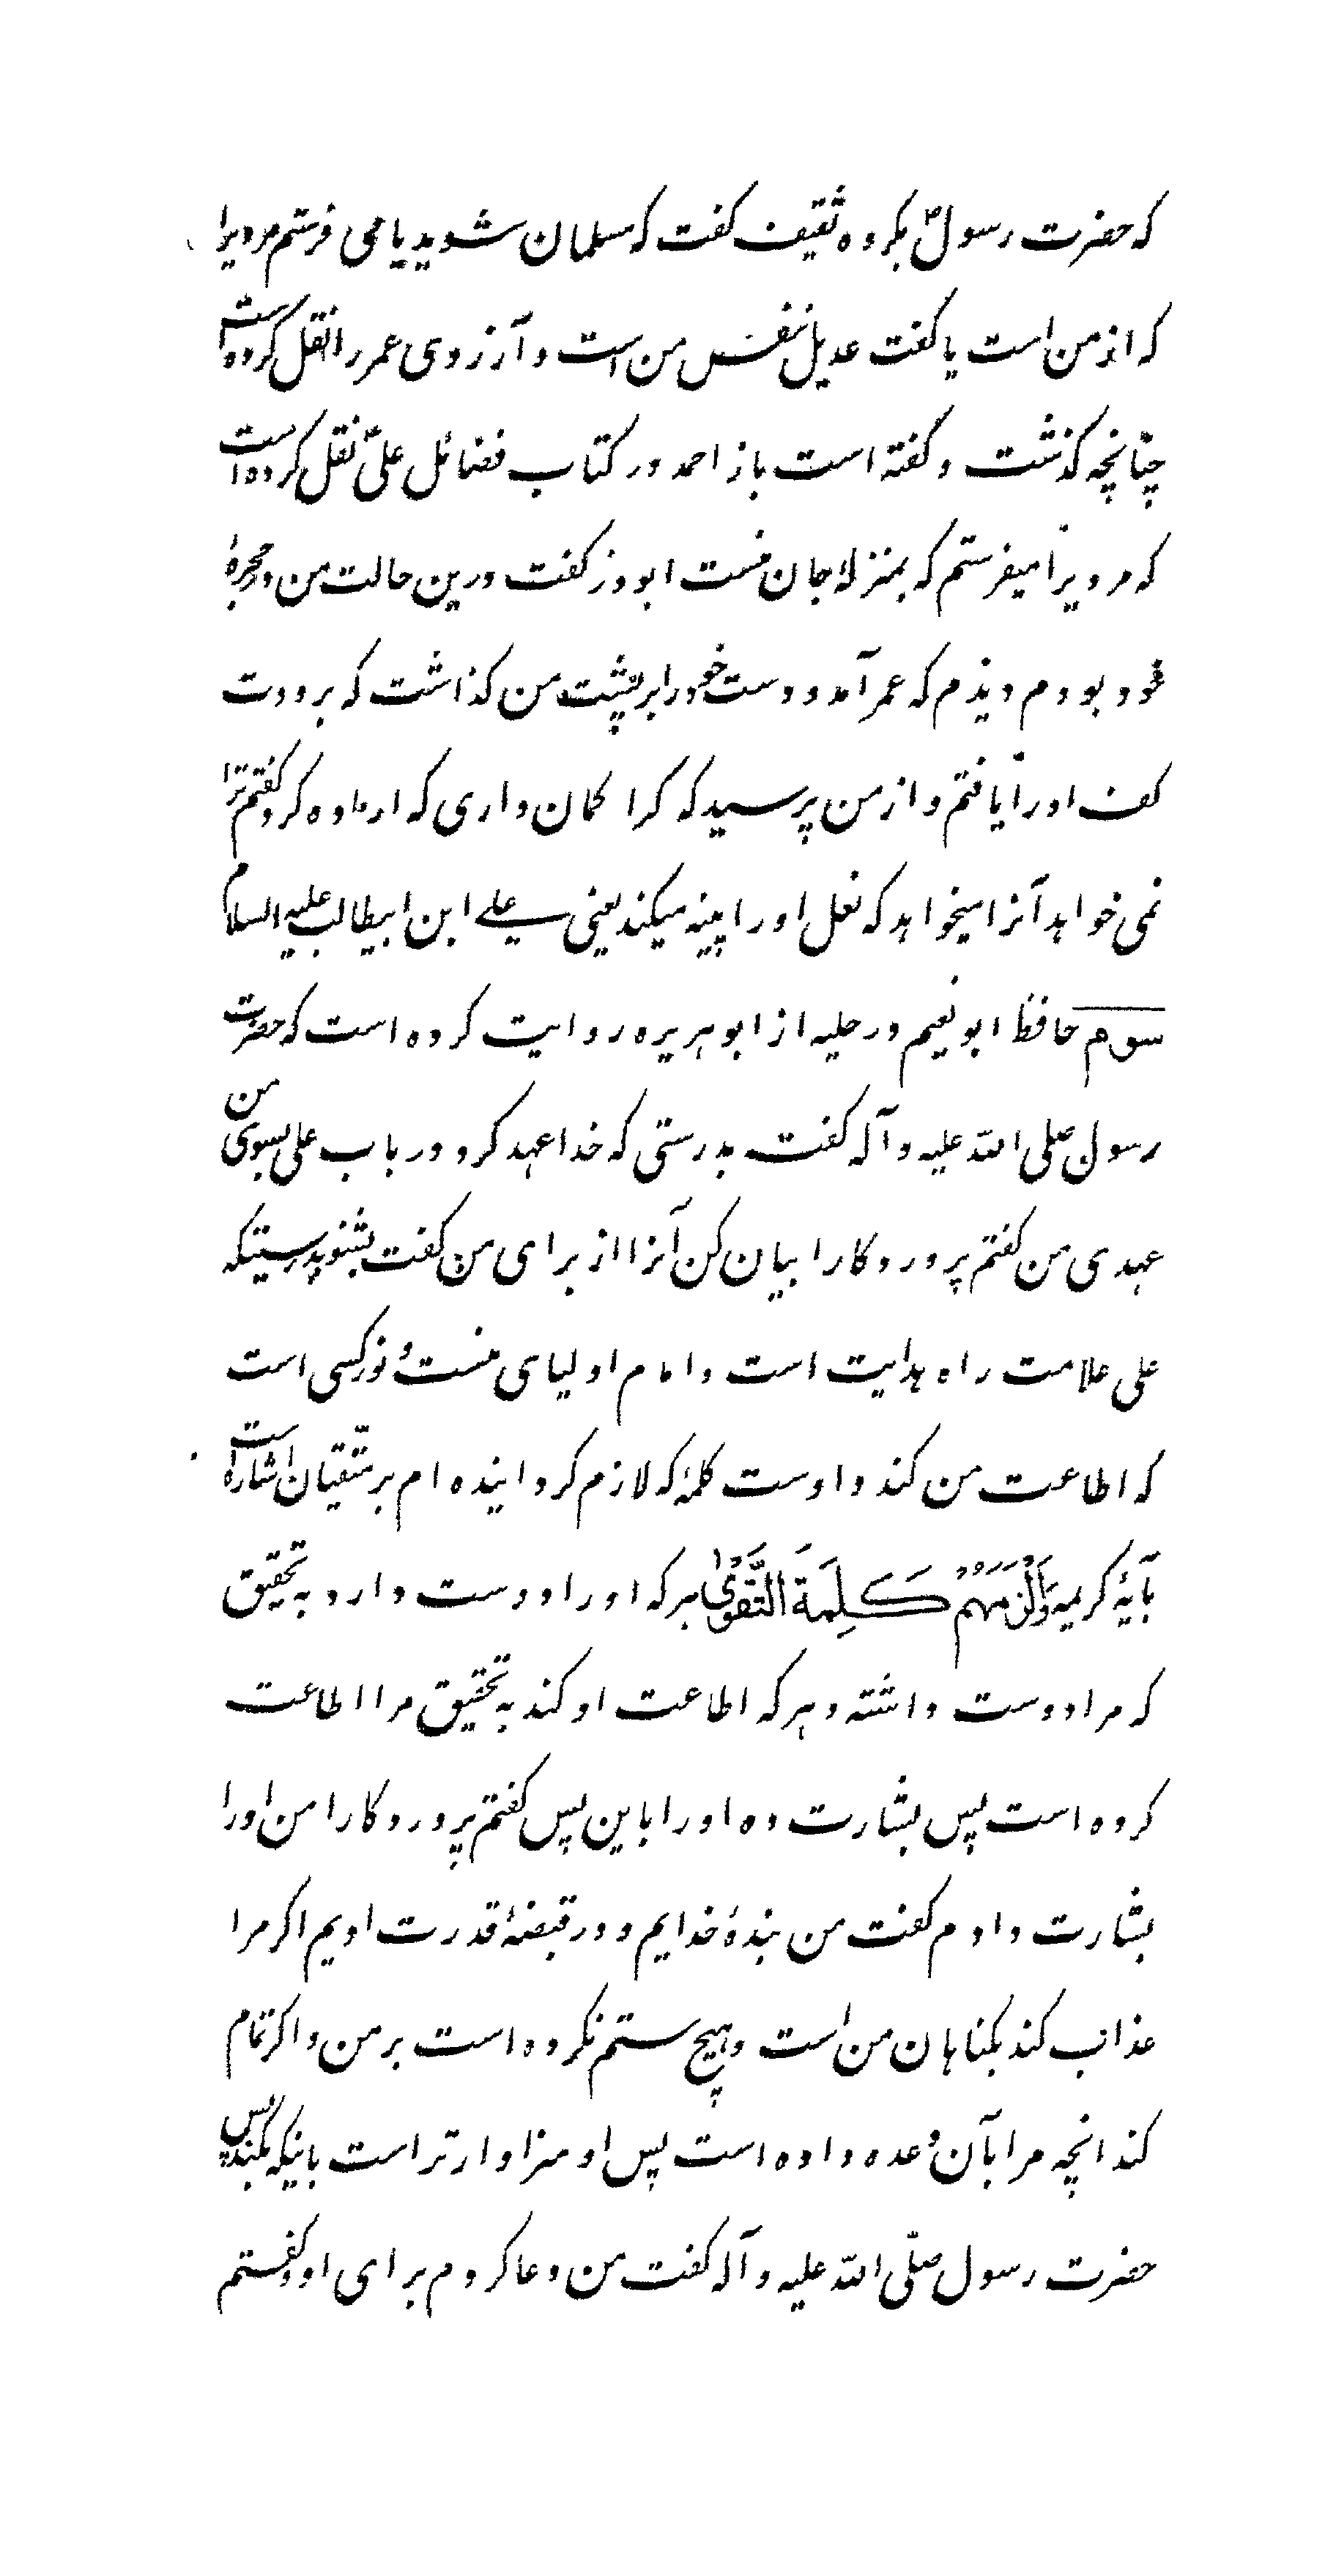 که حضرت رسولؐ بگروه ثقیف گفت که مسلمان شوید یا می فرستم مردیرا
که از من است یا گفت عدیل نفس من است و آرزوی عمر را نقل کرده است
چنانچه گذشت و گفته است باز احمد در کتاب فضائل علیؑ نقل کرده است
که مردیرا میفرستم که بمنزلهٔ جان منست ابوذر گفت درین حالت من در حجرهٔ
خود بودم دیدم که عمر آمد و دست خود را بر پشت من گذاشت که برودت
کف او را یافتم و از من پرسید که کرا گمان داری که اراده کرد گفتم ترا
نمی خواهد آنرا میخواهد که نعل او را پینه میکند یعنی علے ابن ابیطالب علیه السلام
سوم حافظ ابو نعیم در حلیه از ابو هریره روایت کرده است که حضرت
رسول صلی الله علیه و آله گفت بدرستی که خدا عهد کرد در باب علی بسوی من
عهدی من گفتم پروردگارا بیان کن آنرا از برای من گفت بشنو بدرستیکه
علی علامت راه هدایت است و امام اولیای منست و نور کسی است
که اطاعت من کند و اوست کلمهٔ که لازم گردانیده ام بر متّقیان اشاره است
بآیهٔ کریمه وَأَلْزَمَهُمْ كَلِمَةَ التَّقْوَىٰ هر که او را دوست دارد به تحقیق
که مرا دوست داشته و هر که اطاعت او کند به تحقیق مرا اطاعت
کرده است پس بشارت ده او را باین پس گفتم پروردگارا من او را
بشارت دادم گفت من بندهٔ خدایم و در قبضهٔ قدرت اویم اگر مرا
عذاب کند بگناهان من است و هیچ ستم نکرده است بر من و اگر تمام
کند انچه مرا بآن وعده داده است پس او سزاوارتر است باینکه بکند پس
حضرت رسول صلّی الله علیه و آله گفت من دعا کردم برای او و گفتم